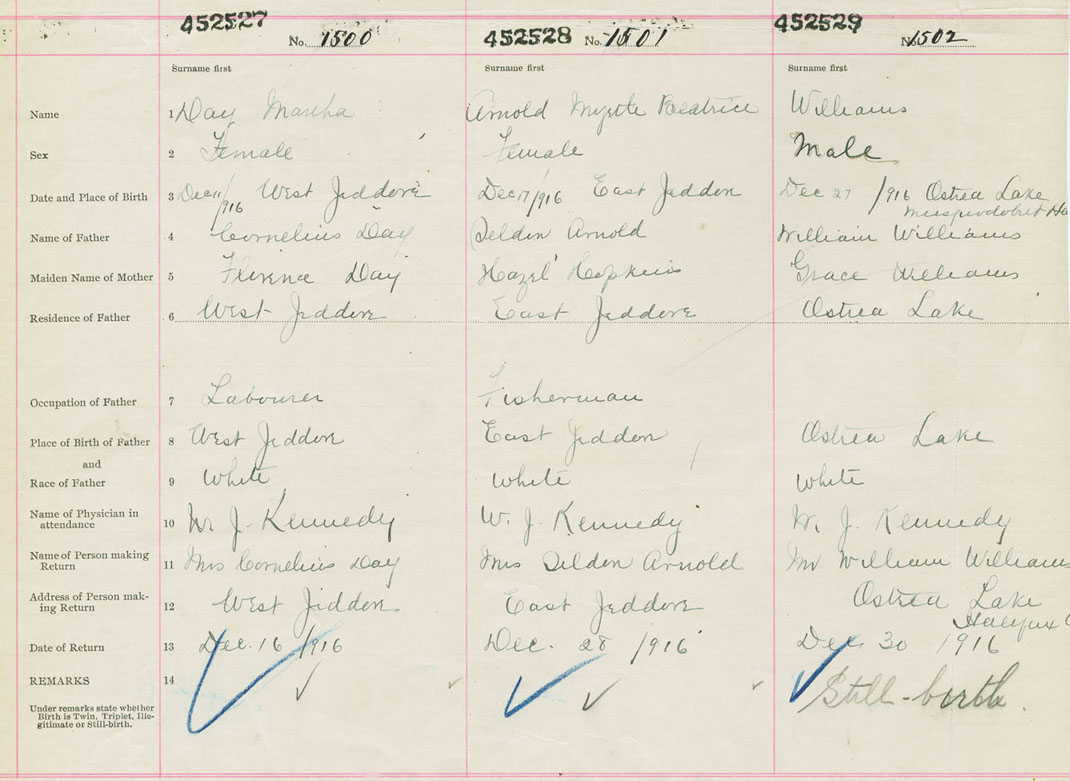 452527
No. 1500
452528 No. 1501
452529
No. 1502
Surname first Surname first Surname first
Name 1 Day Martha Arnold Myrtle Beatrice Williams
Sex 2 Female Female Male
Date and Place of Birth 3 Dec 11/916 West Jeddore Dec 17/916 East Jeddore Dec 27 /916 Ostrea Lake
Musquodoboit
Name of Father 4 Cornelius Day Selden Arnold William Williams
Maiden Name of Mother 5 Florence Day Hazel Hopkins Grace Williams
Residence of Father 6 West Jeddore East Jeddore Ostrea Lake
Occupation of Father 7 Labourer Fisherman
Place of Birth of Father 8 West Jeddore East Jeddore Ostrea Lake
and
Race of Father 9 White White White
Name of Physician in
attendance 10 W. J. Kennedy W. J. Kennedy W. J. Kennedy
Name of Person making
Return 11 Mrs Cornelius Day Mrs Selden Arnold Mr William Williams
Address of Person mak-
ing Return 12 West Jeddore East Jeddore Ostrea Lake
Halifax
Date of Return 13 Dec. 16 /916 Dec. 28 /916 Dec 30 /916
REMARKS 14 Still-birth.
Under remarks state whether
Birth is Twin, Triplet, Ille-
gitimate or Still-birth.